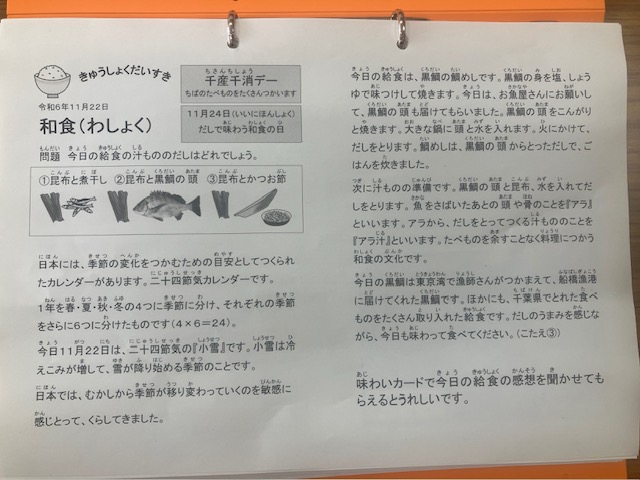 きゅうしょくだいすき
令和6年11月22日
和食(わしょく)
千産千消デー
ちばのたべものをたくさんつかいます
11月24日(いいにほんしょく)
だしで味わう和食の日
問題 今日の給食の汁もののだしはどれでしょう。
①昆布と煮干し ②昆布と黒鯛の頭 ③昆布とかつお節
日本には、季節の変化をつかむための目安としてつくられ
たカレンダーがあります。二十四節気カレンダーです。
1年を春・夏・秋・冬の4つに季節に分け、それぞれの季節
をさらに6つに分けたものです(4×6=24)。
今日11月22日は、二十四節気の『小雪』です。小雪は冷
えこみが増して、雪が降り始める季節のことです。
日本では、むかしから季節が移り変わっていくのを敏感に
感じとって、くらしてきました。
今日の給食は、黒鯛の鯛めしです。黒鯛の身を塩、しょう
ゆで味つけして焼きます。今日は、お魚屋さんにお願いし
て、黒鯛の頭も届けてもらいました。黒鯛の頭をこんがり
と焼きます。大きな鍋に頭と水を入れます。火にかけて、
だしをとります。鯛めしは、黒鯛の頭からとっただしで、ご
はんを炊きました。
次に汁ものの準備です。黒鯛の頭と昆布、水を入れてだ
しをとります。魚をさばいたあとの頭や骨のことを『アラ』
といいます。アラから、だしをとってつくる汁もののことを
『アラ汁』といいます。たべものを余すことなく料理につかう
和食の文化です。
今日の黒鯛は東京湾で漁師さんがつかまえて、船橋漁港
に届けてくれた黒鯛です。ほかにも、千葉県でとれた食べ
ものをたくさん取り入れた給食です。だしのうまみを感じな
がら、今日も味わって食べてください。(こたえ③)
味わいカードで今日の給食の感想を聞かせても
らえるとうれしいです。